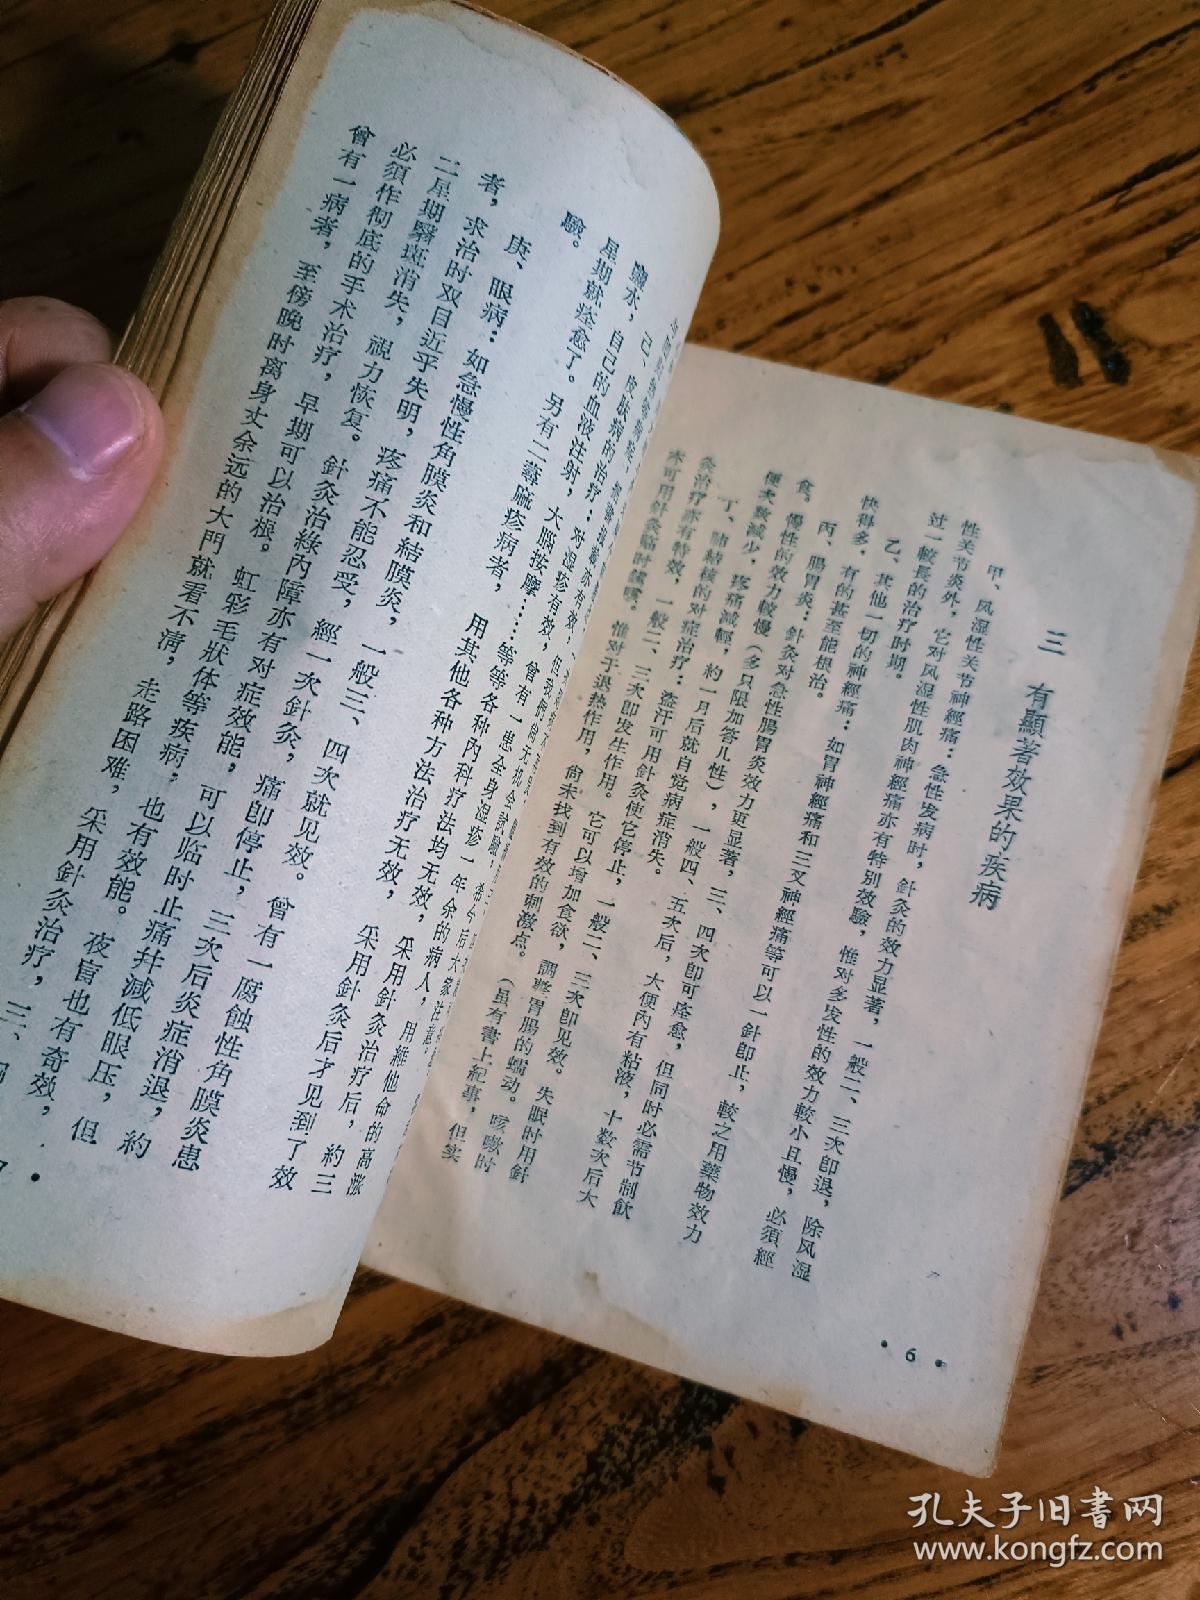 三 有顯著效果的疾病
甲、风湿性关节神經痛：急性发病时，針灸的效力显著，一般二、三次即退，除风湿
性关节炎外，它对风湿性肌肉神經痛亦有特別效驗，惟对多发性的效力較小且慢，必須經
过一較長的治疗时期。
乙、其他一切的神經痛：如胃神經痛和三叉神經痛等可以一針即止，較之用藥物效力
快得多，有的甚至能根治。
丙、腸胃炎：針灸对急性腸胃炎效力更显著，三、四次即可痊愈，但同时必需节制飲
食。慢性的效力較慢（多只限加答儿性），一般四、五次后，大便內有粘液，十数次后大
便次数減少，疼痛減輕，約一月后就自觉病症消失。
丁、肺結核的对症治疗：盜汗可用針灸使它停止，一般二、三次即見效。失眠时用針
灸治疗亦有特效，一般二、三次即发生作用。它可以增加食欲，調整胃腸的蠕动。咳嗽时
亦可用針灸临时鎮咳。惟对于退热作用，尙未找到有效的刺激点。（虽有書上紀事，但实
• 6 •
己、皮肤病的治疗：对湿疹亦有效，
鹽水，自己的血液注射，大腦按摩……等等各种內科疗法均无效，采用針灸治疗后，約三
星期就痊愈了。另有二蕁麻疹病者，用其他各种方法治疗无效，采用針灸后才見到了效
驗。
庚、眼病：如急慢性角膜炎和結膜炎，一般三、四次就見效。曾有一腐蝕性角膜炎患
者，求治时双目近乎失明，疼痛不能忍受，經一次針灸，痛即停止，三次后炎症消退，約
二星期翳斑消失，視力恢复。針灸治綠內障亦有对症效能，可以临时止痛幷減低眼压，但
必須作彻底的手术治疗，早期可以治根。虹彩毛狀体等疾病，也有效能。夜盲也有奇效，
曾有一病者，至傍晚时离身丈余远的大門就看不淸，走路困难，采用針灸治疗，三、
孔夫子旧書网
www.kongfz.com